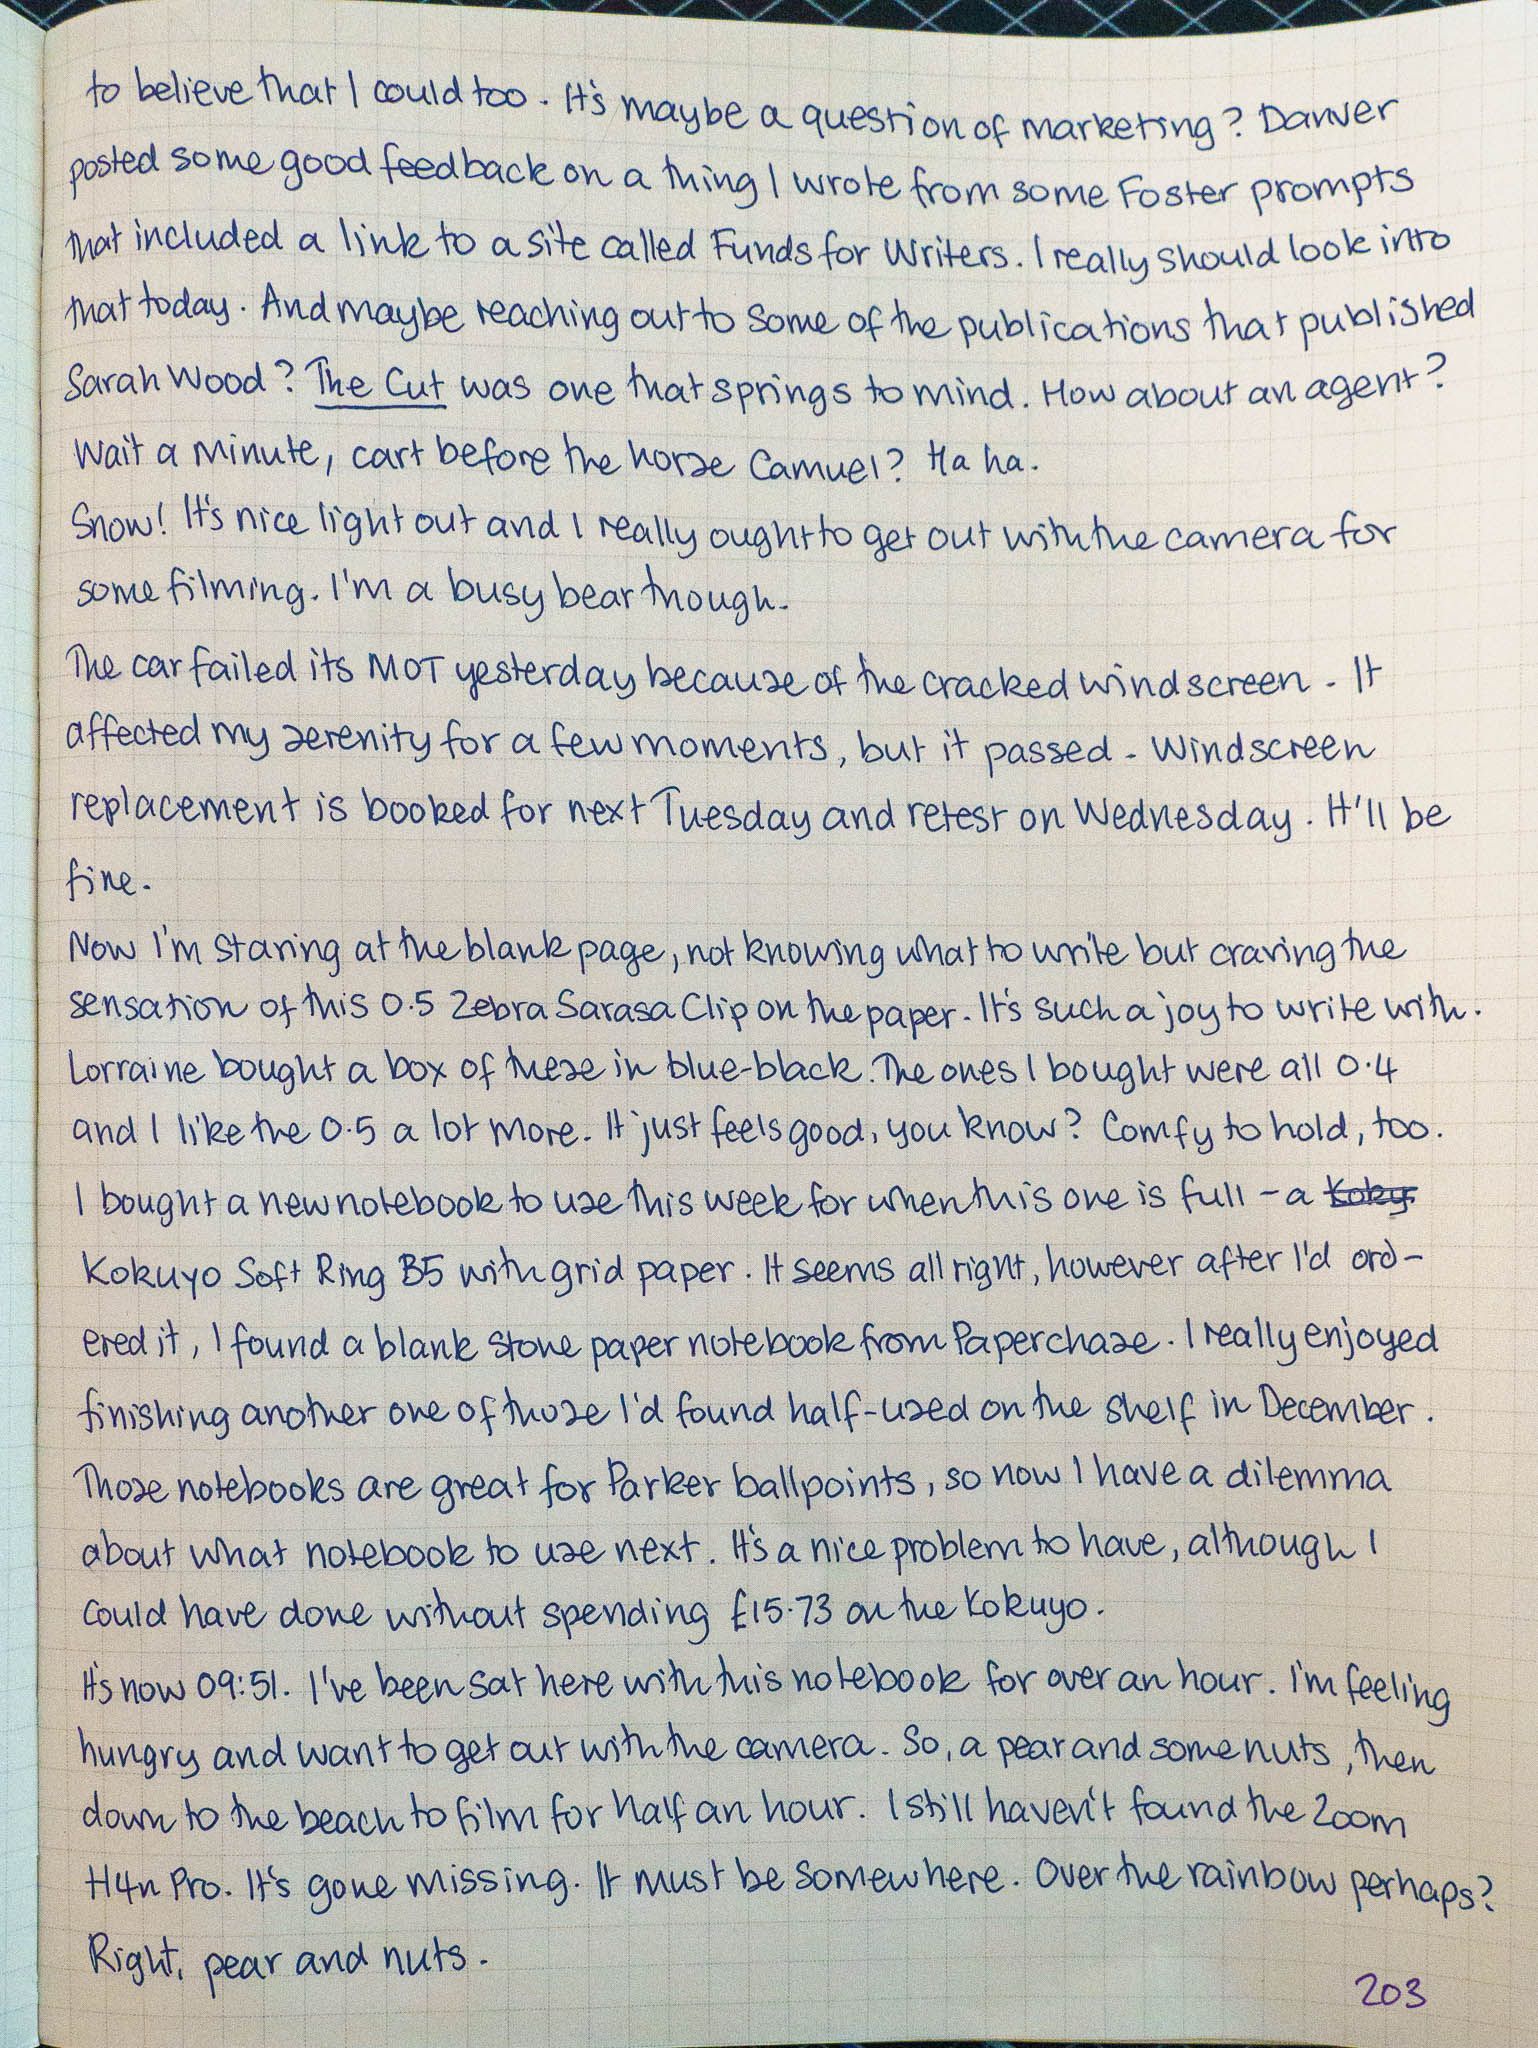 to believe that I could too. It's maybe a question of marketing? Danver
posted some good feedback on a thing I wrote from some Foster prompts
that included a link to a site called Funds for Writers. I really should look into
that today. And maybe reaching out to some of the publications that published
Sarah Wood? The Cut was one that springs to mind. How about an agent?
Wait a minute, cart before the horse Camuel? Ha ha.
Snow! It's nice light out and I really ought to get out with the camera for
some filming. I'm a busy bear though.
The car failed its MOT yesterday because of the cracked windscreen. It
affected my serenity for a few moments, but it passed. Windscreen
replacement is booked for next Tuesday and retest on Wednesday. It'll be
fine.
Now I'm staring at the blank page, not knowing what to write but craving the
sensation of this 0.5 Zebra Sarasa Clip on the paper. It's such a joy to write with.
Lorraine bought a box of these in blue-black. The ones I bought were all 0.4
and I like the 0.5 a lot more. It just feels good, you know? Comfy to hold, too.
I bought a new notebook to use this week for when this one is full - a Koky
Kokuyo Soft Ring B5 with grid paper. It seems all right, however after I'd ord-
ered it, I found a blank stone paper notebook from Paperchase. I really enjoyed
finishing another one of those I'd found half-used on the shelf in December.
Those notebooks are great for Parker ballpoints, so now I have a dilemma
about what notebook to use next. It's a nice problem to have, although I
could have done without spending £15.73 on the Kokuyo.
It's now 09:51. I've been sat here with this notebook for over an hour. I'm feeling
hungry and want to get out with the camera. So, a pear and some nuts, then
down to the beach to film for half an hour. I still haven't found the Zoom
H4n Pro. It's gone missing. It must be somewhere. Over the rainbow perhaps?
Right, pear and nuts.
203